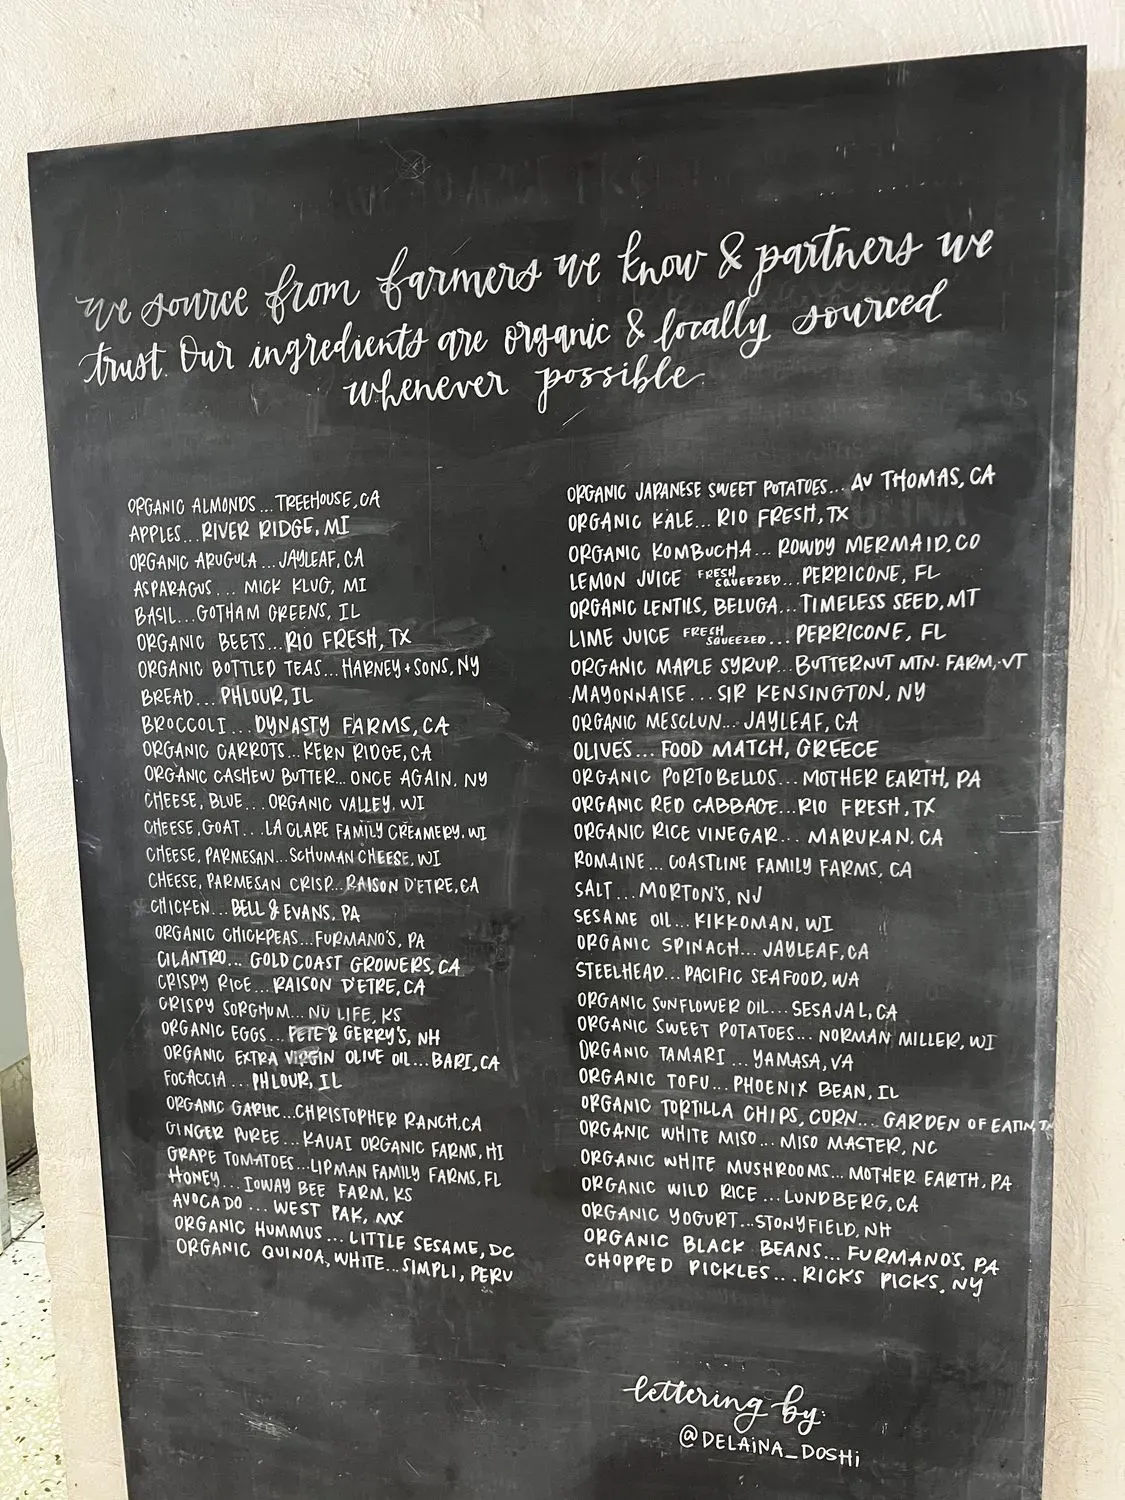 we source from farmers we know & partners we
trust. Our ingredients are organic & locally sourced
whenever possible
ORGANIC ALMONDS...TREEHOUSE, CA
APPLES...RIVER RIDGE, MI
ORGANIC ARUGULA...JAYLEAF, CA
ASPARAGUS...MICK KLUG, MI
BASIL...GOTHAM GREENS, IL
ORGANIC BEETS...RIO FRESH, TX
ORGANIC BOTTLED TEAS...HARNEY+SONS, NY
BREAD...PHLOUR, IL
BROCCOLI...DYNASTY FARMS, CA
ORGANIC CARROTS...KERN RIDGE, CA
ORGANIC CASHEW BUTTER...ONCE AGAIN, NY
CHEESE, BLUE...ORGANIC VALLEY, WI
CHEESE, GOAT...LA CLARE FAMILY CREAMERY, WI
CHEESE, PARMESAN...SCHUMAN CHEESE, WI
CHEESE, PARMESAN CRISP...RAISON D'ETRE, CA
CHICKEN...BELL & EVANS, PA
ORGANIC CHICKPEAS...FURMANO'S, PA
CILANTRO...GOLD COAST GROWERS, CA
CRISPY RICE...RAISON D'ETRE, CA
CRISPY SORGHUM...NU LIFE, KS
ORGANIC EGGS...PETE & GERRY'S, NH
ORGANIC EXTRA VIRGIN OLIVE OIL...BARI, CA
FOCACCIA...PHLOUR, IL
ORGANIC GARLIC...CHRISTOPHER RANCH, CA
GINGER PUREE...KAUAI ORGANIC FARMS, HI
GRAPE TOMATOES...LIPMAN FAMILY FARMS, FL
HONEY...IOWAY BEE FARM, KS
AVOCADO...WEST PAK, MX
ORGANIC HUMMUS...LITTLE SESAME, DC
ORGANIC QUINOA, WHITE...SIMPLI, PERU
ORGANIC JAPANESE SWEET POTATOES...AV THOMAS, CA
ORGANIC KALE...RIO FRESH, TX
ORGANIC KOMBUCHA...ROWDY MERMAID, CO
LEMON JUICE FRESH SQUEEZED...PERRICONE, FL
ORGANIC LENTILS, BELUGA...TIMELESS SEED, MT
LIME JUICE FRESH SQUEEZED...PERRICONE, FL
ORGANIC MAPLE SYRUP...BUTTERNUT MTN. FARM, VT
MAYONNAISE...SIR KENSINGTON, NY
ORGANIC MESCLUN...JAYLEAF, CA
OLIVES...FOOD MATCH, GREECE
ORGANIC PORTOBELLOS...MOTHER EARTH, PA
ORGANIC RED CABBAGE...RIO FRESH, TX
ORGANIC RICE VINEGAR...MARUKAN, CA
ROMAINE...COASTLINE FAMILY FARMS, CA
SALT...MORTON'S, NJ
SESAME OIL...KIKKOMAN, WI
ORGANIC SPINACH...JAYLEAF, CA
STEELHEAD...PACIFIC SEAFOOD, WA
ORGANIC SUNFLOWER OIL...SESAJAL, CA
ORGANIC SWEET POTATOES...NORMAN MILLER, WI
ORGANIC TAMARI...YAMASA, VA
ORGANIC TOFU...PHOENIX BEAN, IL
ORGANIC TORTILLA CHIPS, CORN...GARDEN OF EATIN,
ORGANIC WHITE MISO...MISO MASTER, NC
ORGANIC WHITE MUSHROOMS...MOTHER EARTH, PA
ORGANIC WILD RICE...LUNDBERG, CA
ORGANIC YOGURT...STONYFIELD, NH
ORGANIC BLACK BEANS...FURMANO'S, PA
CHOPPED PICKLES...RICKS PICKS, NY
lettering by:
@DELAINA_DOSHI